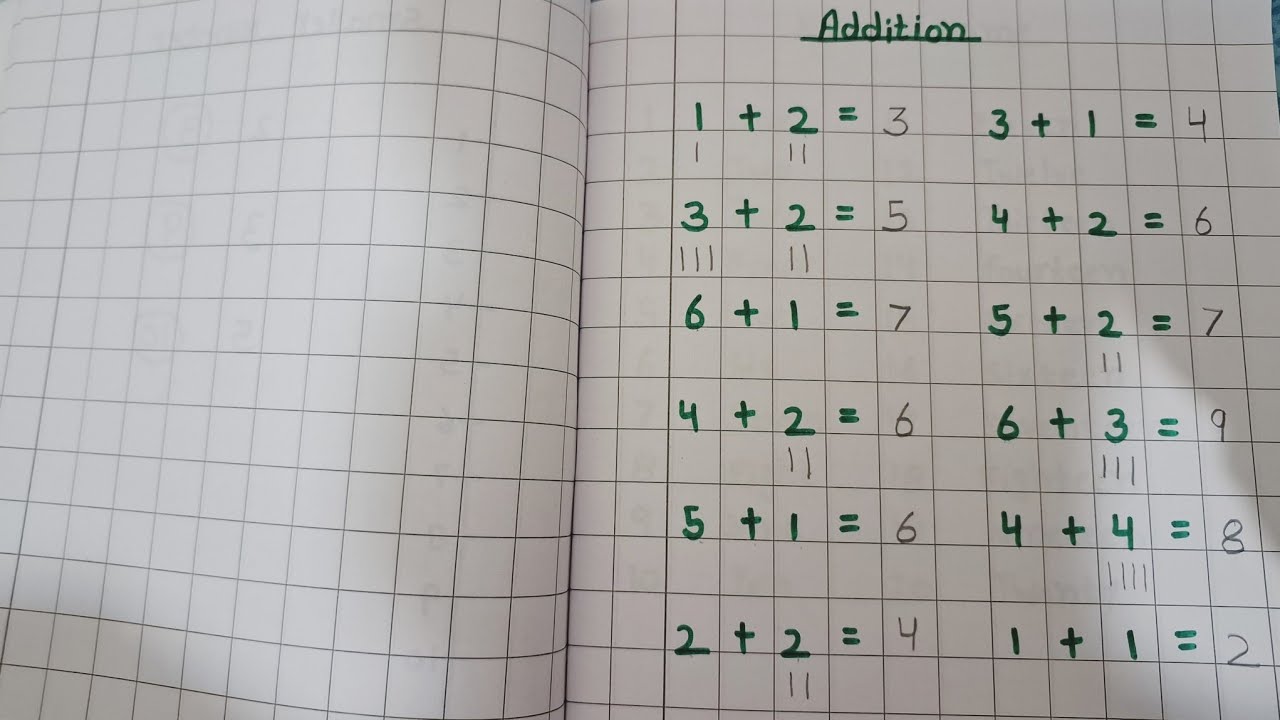 Addition
1 + 2 = 3 3 + 1 = 4
| ||
3 + 2 = 5 4 + 2 = 6
|||| ||
6 + 1 = 7 5 + 2 = 7
||
4 + 2 = 6 6 + 3 = 9
|| |||
5 + 1 = 6 4 + 4 = 8
||||
2 + 2 = 4 1 + 1 = 2
||